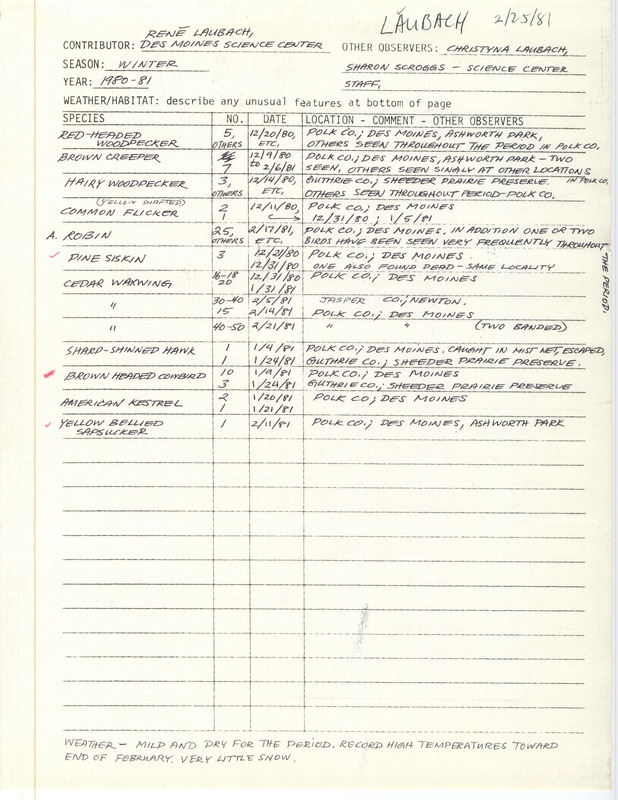 LAUBACH 2/25/81
RENÉ LAUBACH,
CONTRIBUTOR: DES MOINES SCIENCE CENTER OTHER OBSERVERS: CHRISTYNA LAUBACH,
SEASON: WINTER SHARON SCROGGS - SCIENCE CENTER
YEAR: 1980-81 STAFF,
WEATHER/HABITAT: describe any unusual features at bottom of page
SPECIES NO. DATE LOCATION - COMMENT - OTHER OBSERVERS
RED-HEADED 5, 12/20/80, POLK CO.; DES MOINES, ASHWORTH PARK,
WOODPECKER OTHERS ETC. OTHERS SEEN THROUGHOUT THE PERIOD IN POLK CO.
BROWN CREEPER 12/9/80 POLK CO.; DES MOINES, ASHWORTH PARK - TWO
7 to 2/6/81 SEEN, OTHERS SEEN SINGLY AT OTHER LOCATIONS
HAIRY WOODPECKER 3, 12/14/80, GUTHRIE CO.; SHEEDER PRAIRIE PRESERVE. IN POLK CO.
OTHERS ETC. OTHERS SEEN THROUGHOUT PERIOD-POLK CO.
(YELLOW SHAFTED) 2 12/11/80, POLK CO.; DES MOINES
COMMON FLICKER 1 12/31/80; 1/5/81
A. ROBIN 25, 2/17/81, POLK CO.; DES MOINES. IN ADDITION ONE OR TWO
OTHERS ETC. BIRDS HAVE BEEN SEEN VERY FREQUENTLY THROUGHOUT THE PERIOD.
PINE SISKIN 3 12/21/80 POLK CO.; DES MOINES.
12/31/80 ONE ALSO FOUND DEAD-SAME LOCALITY
CEDAR WAXWING 16-18 12/31/80 POLK CO.; DES MOINES
20 1/31/81
" 30-40 2/5/81 JASPER CO.; NEWTON.
15 2/14/81 POLK CO.; DES MOINES
" 40-50 2/21/81 " " (TWO BANDED)
SHARP-SHINNED HAWK 1 1/4/81 POLK CO.; DES MOINES. CAUGHT IN MIST NET, ESCAPED,
1 1/24/81 GUTHRIE CO.; SHEEDER PRAIRIE PRESERVE.
BROWN HEADED COWBIRD 10 1/9/81 POLK CO.; DES MOINES
3 1/24/81 GUTHRIE CO.; SHEEDER PRAIRIE PRESERVE
AMERICAN KESTREL 2 1/20/81 POLK CO.; DES MOINES
1 1/21/81
YELLOW BELLIED 1 2/11/81 POLK CO.; DES MOINES, ASHWORTH PARK
SAPSUCKER
WEATHER - MILD AND DRY FOR THE PERIOD. RECORD HIGH TEMPERATURES TOWARD
END OF FEBRUARY. VERY LITTLE SNOW.